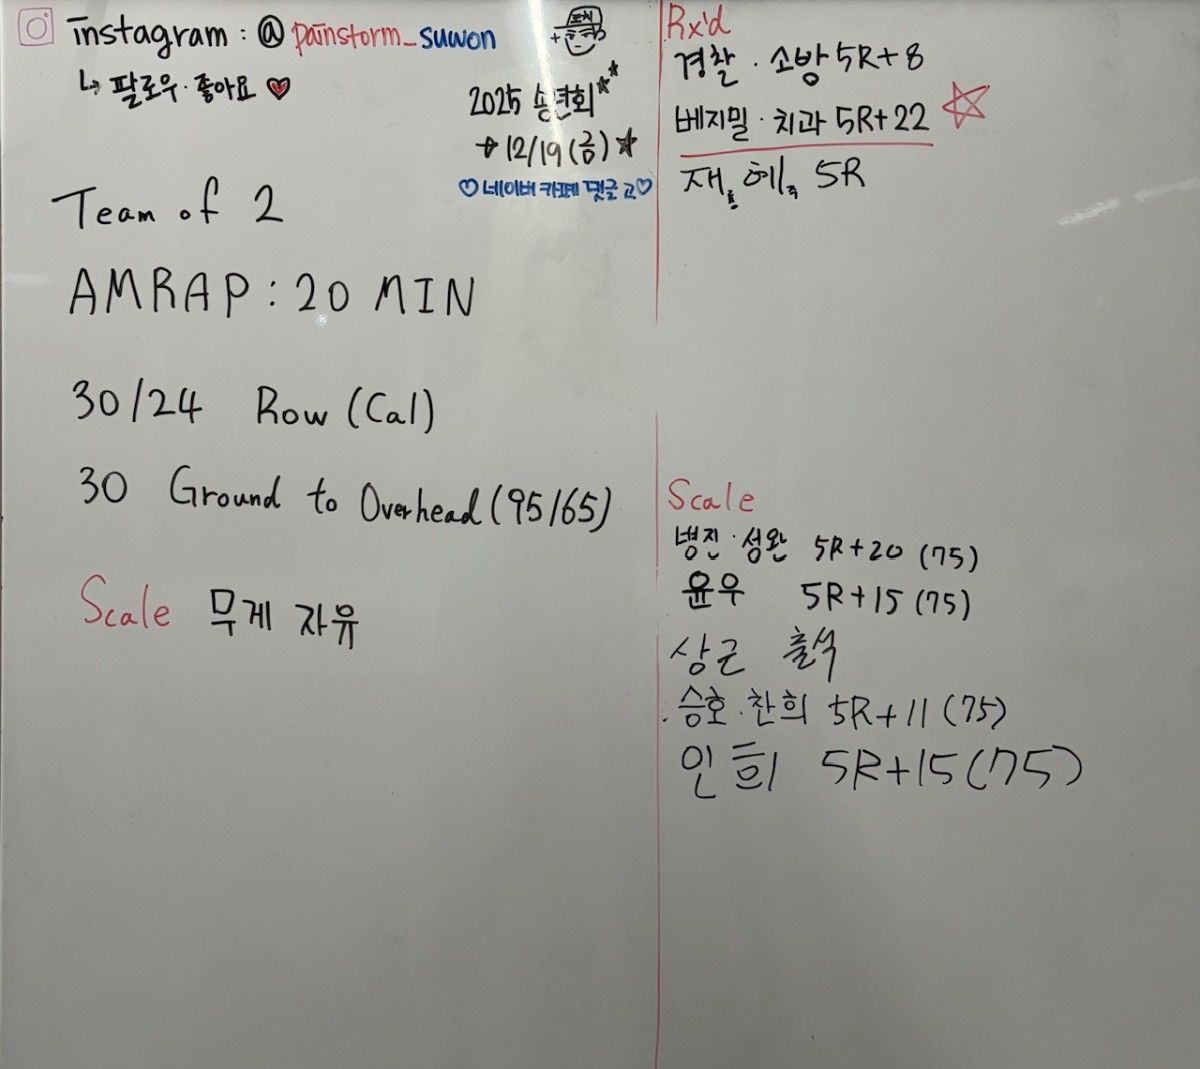 instagram : @painstorm_suwon
↳ 팔로우·좋아요 ♥
코치
2025 송년회
→ 12/19(금) ★
♡네이버 카페 댓글 고♡
Team of 2
AMRAP : 20 MIN
30/24 Row (Cal)
30 Ground to Overhead (95/65)
Scale 무게 자유
Rx'd
경찰 · 소방 5R+8
베지밀 · 치과 5R+22
재, 예, 5R
Scale
병진·성완 5R+20 (75)
윤우 5R+15 (75)
상근 출석
승호·찬희 5R+11 (75)
인희 5R+15 (75)